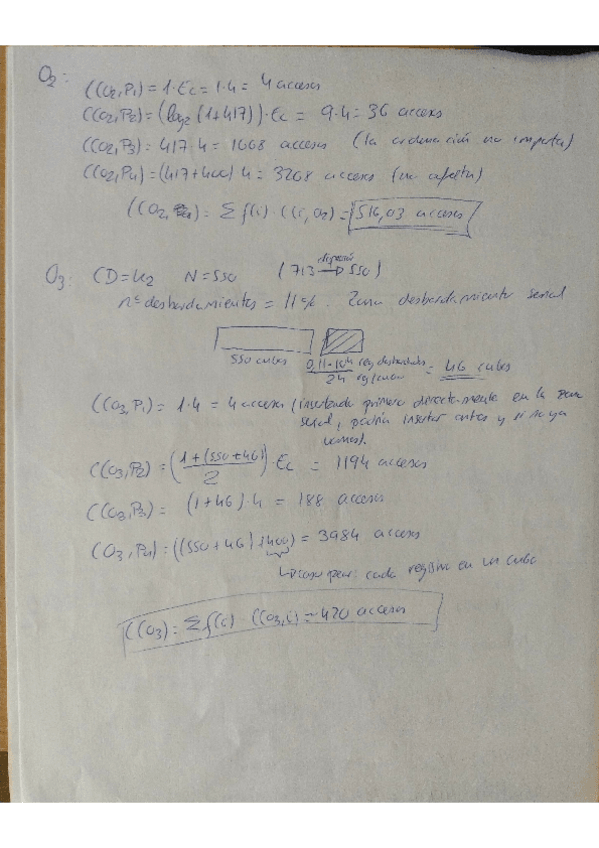 O₂: C(O₂,P₁) = 1·Ec = 1·4 = 4 accesos
C(O₂,P₂) = (log₂(1+417))·Ec = 9·4 = 36 accesos
C(O₂,P₃) = 417·4 = 1668 accesos (la ordenación no computa)
C(O₂,P₄) = (417+400)·4 = 3268 accesos (no afecta)
C(O₂) = Σ f(i)·C(i,O₂) = 516,03 accesos
O₃: CD=k₂ N=550 (713 → 550)
nº desbordamientos = 11% . Zona desbordamiento serial
550 cubos 0,11·10⁴ reg desbordados / 24 reg/cubo = 46 cubos
C(O₃,P₁) = 1·4 = 4 accesos (insertando primero directamente en la zona
serial, podría insertar antes y si no ya
vamos).
C(O₃,P₂) = (1+(550+46) / 2)·Ec = 1194 accesos
C(O₃,P₃) = (1+46)·4 = 188 accesos
C(O₃,P₄) = ((550+46)+400) = 3984 accesos
↳ caso peor: cada registro en un cubo
C(O₃) = Σ f(i)·C(O₃,i) = 420 accesos